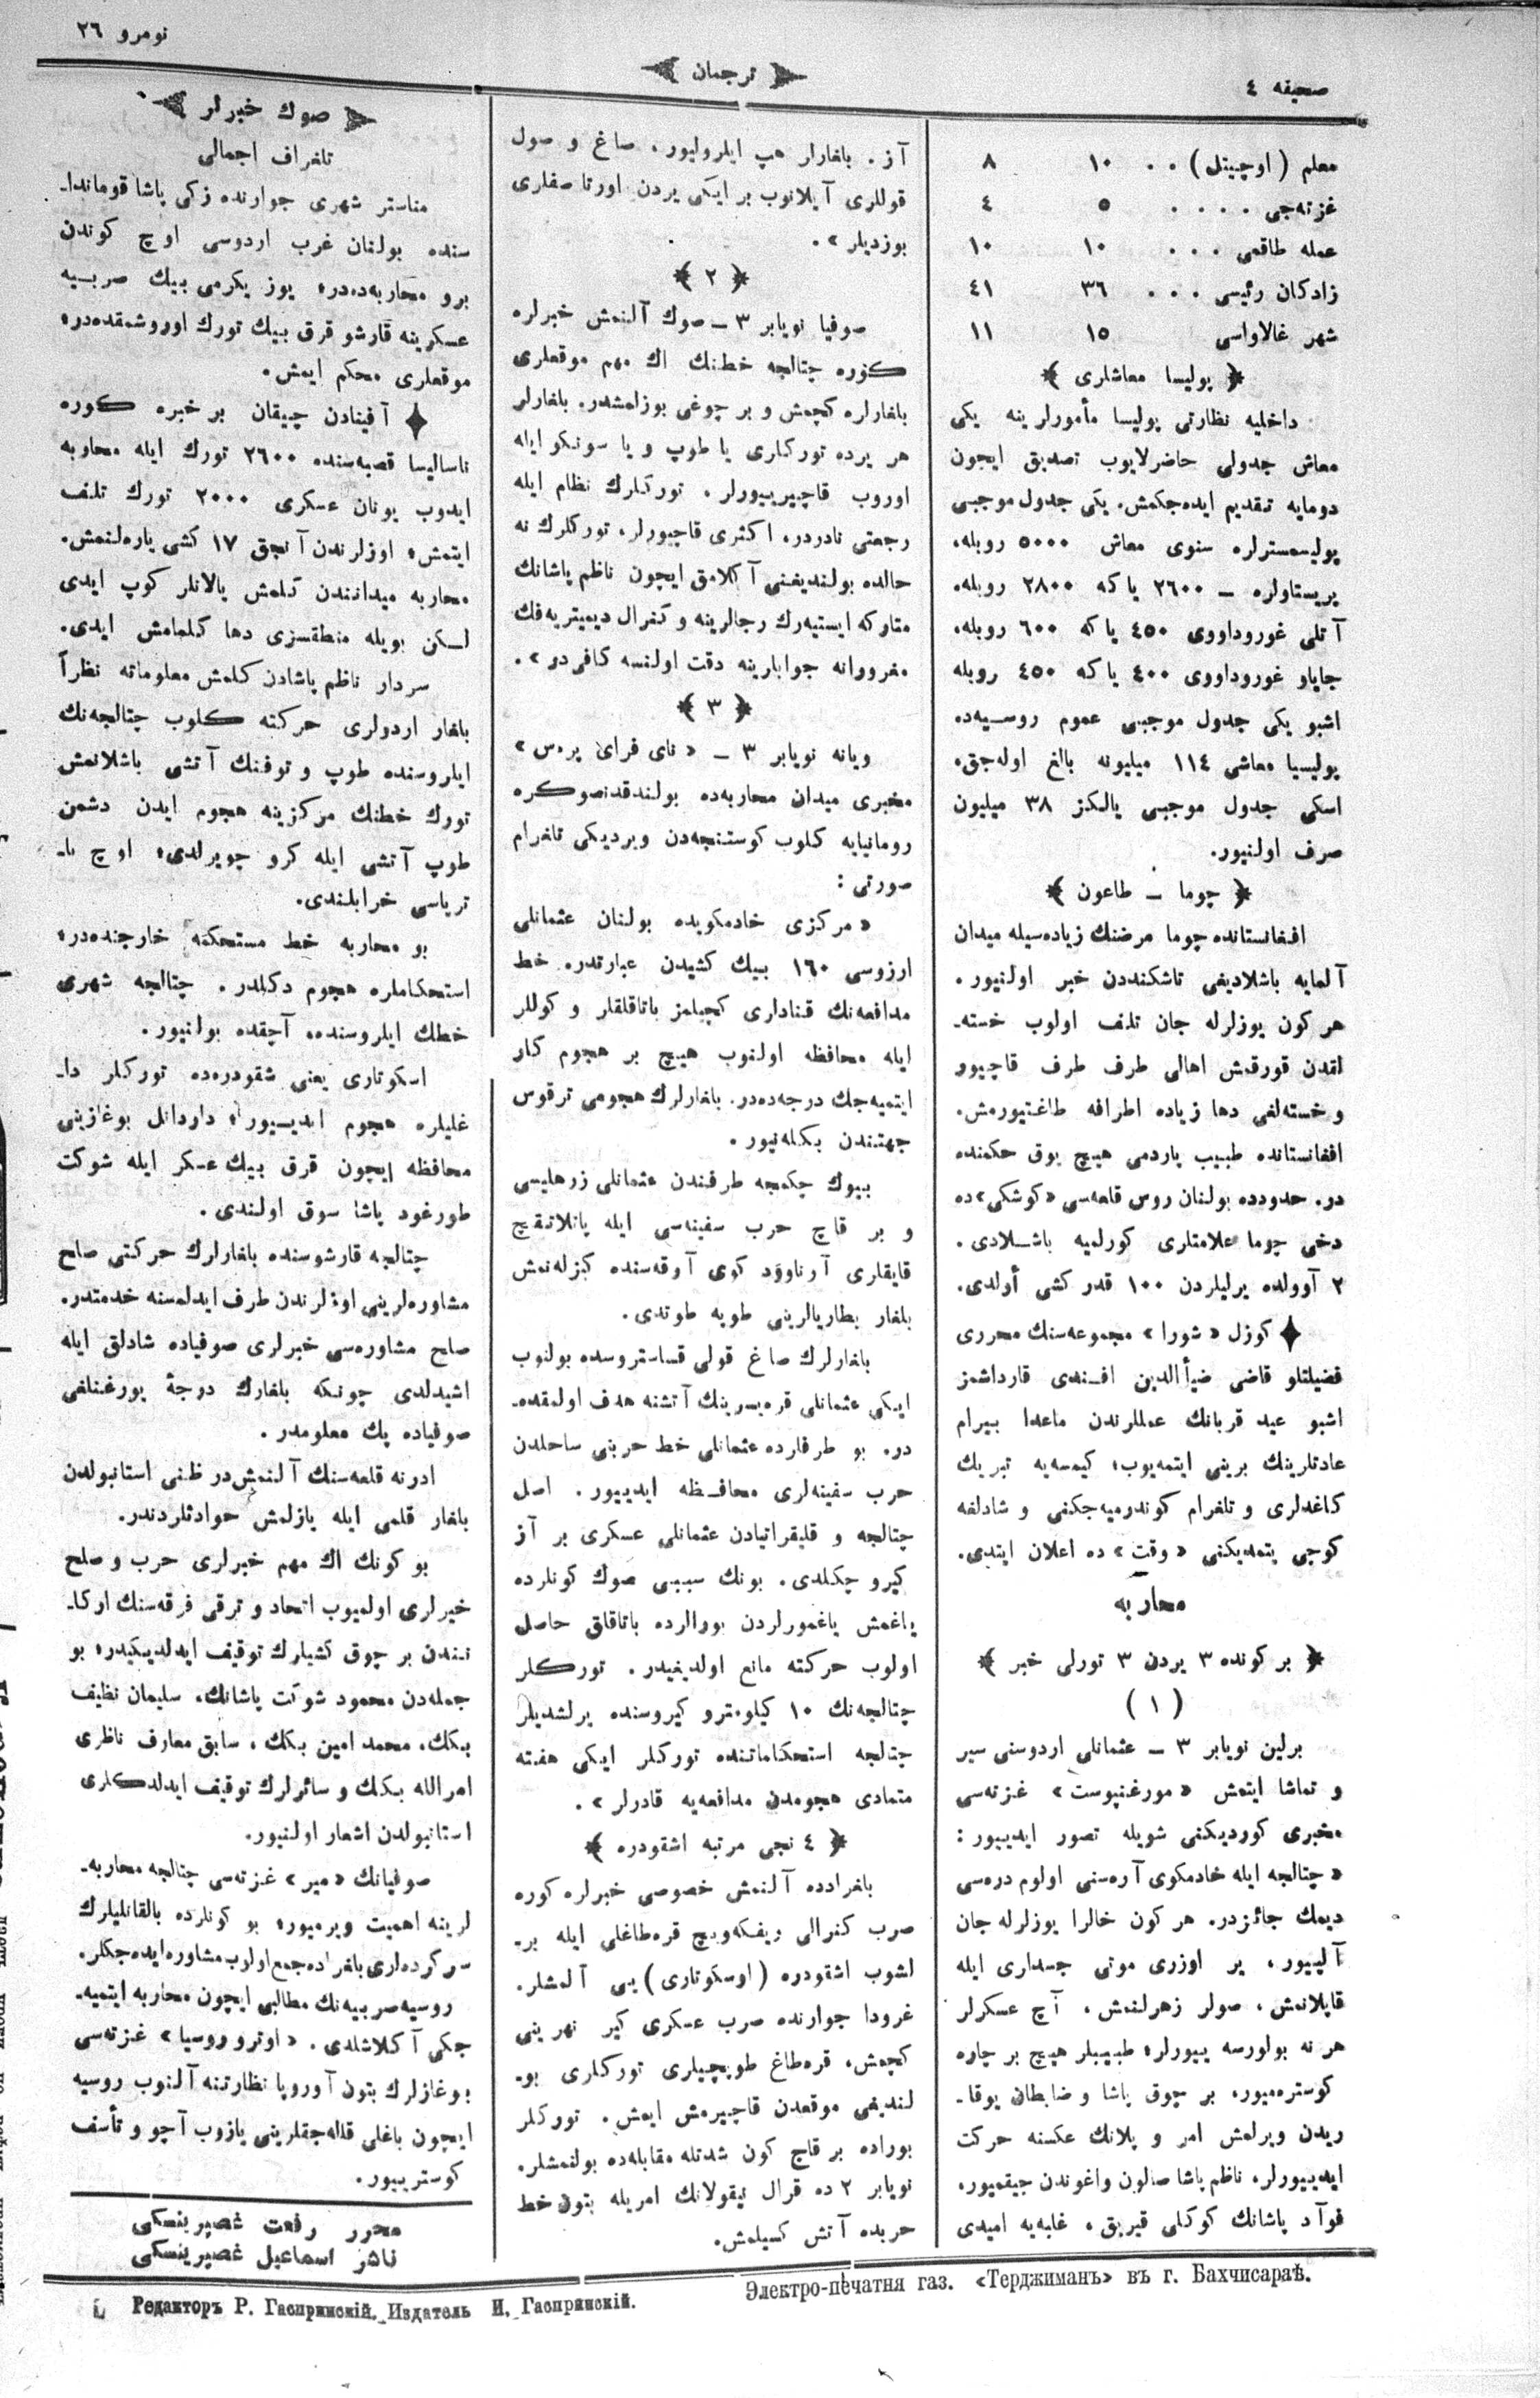 صحیفه ٤
ترجمان
نومرو ٢٦
معلم (اوچیتل) . . ١٠ ٨
غزته‌جی . . . . ٥ ٤
عمله طاقمی . . . ١٠ ١٠
زادکان رئیسی . . . ٣٦ ٤١
شهر غالاواسی ١٥ ١١
﴿ پولیسا معاشلری ﴾
داخلیه نظارتی پولیسا مأمورلرینه یکی
معاش جدولی حاضرلایوب تصدیق ایچون
دومایه تقدیم ایده‌جکمش. یکی جدول موجبی
پولیسمسترلره سنوی معاش ٥٠٠٠ روبله،
پریستاولره ــ ٢٦٠٠ یا که ٢٨٠٠ روبله،
آتلی غوروداووی ٤٥٠ یا که ٦٠٠ روبله،
جایاو غوروداووی ٤٠٠ یا که ٤٥٠ روبله
اشبو یکی جدول موجبی عموم روسیه‌ده
پولیسیا معاشی ١١٤ میلیونه بالغ اوله‌جق.
اسکی جدول موجبی یالکز ٣٨ میلیون
صرف اولنیور.
﴿ چوما ــ طاعون ﴾
افغانستانده چوما مرضنك زیاده‌سیله میدان
آلمایه باشلادیغی تاشکنددن خبر اولنیور.
هر کون یوزلرله جان تلف اولوب خسته-
لقدن قورقمش اهالی طرف طرف قاچیور
و خسته‌لغی دها زیاده اطرافه طاغتیورمش.
افغانستانده طبیب یاردمی هیچ یوق حکمنده
در. حدودده بولنان روس قلعه‌سی «کوشکی»ده
دخی چوما علامتلری کورلمیه باشلادی.
٢ آوولده یرلیلردن ١٠٠ قدر کشی أولدی.
کوزل «شورا» مجموعه‌سنك محرری
فضیلتلو قاضی ضیأالدین افندی قارداشمز
اشبو عید قربانك عمللرندن ماعدا بیرام
عادتلرینك برینی ایتمه‌یوب؛ کیمسه‌یه تبریك
کاغدلری و تلغرام کوندرمیه‌جکنی و شادلغه
کوجی یتمدیکنی «وقت» ده اعلان ایتدی.
محاربه
﴿ بر کونده ٣ یردن ٣ تورلی خبر ﴾
(١)
برلین نویابر ٣ ــ عثمانلی اردوسنی سیر
و تماشا ایتمش «مورغنپوست» غزته‌سی
مخبری کوردیکنی شویله تصور ایدییور:
«چتالجه ایله خادمکوی آره‌سنی اولوم دره‌سی
دیمك جائزدر. هر کون خالرا یوزلرله جان
آلییور، یر اوزری موتی جسدلری ایله
قاپلانمش، صولر زهرلنمش، آچ عسکرلر
هر نه بولورسه ییورلر؛ طبیبلر هیچ بر چاره
کوستره‌میور. بر چوق پاشا و ضابطان یوقا-
ریدن ویرلمش امر و پلانك عکسنه حرکت
ایدییورلر. ناظم پاشا صالون واغوندن چیقمیور.
فوآد پاشانك کوکلی قیریق، غلبه‌یه امیدی
آز. بلغارلر هپ ایلرولیور. صاغ و صول
قوللری آیلانوب بر ایکی یردن اورتا صفلری
بوزدیلر».
﴿ ٢ ﴾
صوفیا نویابر ٣ ــ صوك آلنمش خبرلره
کوره چتالجه خطنك اك مهم موقعلری
بلغارلره کچمش و بر چوغی بوزلمشدر. بلغارلر
هر یرده تورکلری یا طوپ و یا سونکو ایله
اوروب قاچیرییورلر. تورکلرك نظام ایله
رجعتی نادردر. اکثری قاچیورلر. تورکلرك نه
حالده بولندیغنی آکلامق ایچون ناظم پاشانك
متارکه ایستیه‌رك رجالرینه و کنرال دیمیتریه‌فك
مغرورانه جوابلرینه دقت اولنسه کافی در».
﴿ ٣ ﴾
ویانه نویابر ٣ ــ «نای فرای پرەس»
مخبری میدان محاربه‌ده بولندقدنصوکره
رومانیایه کلوب کوستنجه‌دن ویردیکی تلغرام
صورتی:
«مرکزی خادمکویده بولنان عثمانلی
اردوسی ١٦٠ بیك کشیدن عبارتدر. خط
مدافعه‌نك قنادلری کچیلمز باتاقلقلر و کوللر
ایله محافظه اولنوب هیچ بر هجوم کار
ایتمیه‌جك درجه‌ده‌در. بلغارلرك هجومی ترقوس
جهتندن بکله‌نیور.
بیوك چکمجه طرفندن عثمانلی زرهلیسی
و بر قاچ حرب سفینه‌سی ایله پاتلاتقیچ
قایقلری آرناوؤد کوی آرقه‌سنده کیزله‌نمش
بلغار بطاریالرینی طوپه طوتدی.
بلغارلرك صاغ قولی قساستروسده بولنوب
ایکی عثمانلی قره‌یسرینك آتشنه هدف اولمقده-
در. بو طرفلرده عثمانلی خط حربنی ساحلدن
حرب سفینه‌لری محافظه ایدییور. اصل
چتالجه و قلیقراتیادن عثمانلی عسکری بر آز
کیرو چکلدی. بونك سببی صوك کونلرده
یاغمش یاغمورلردن بورالرده باتاقلق حاصل
اولوب حرکته مانع اولدیغیدر. تورکلر
چتالجه‌نك ١٠ کیلومترو کیروسنده یرلشدیلر
چتالجه استحکاماتنده تورکلر ایکی هفته
متمادی هجومدن مدافعه‌یه قادرلر».
﴿ ٤ نجی مرتبه اشقودره ﴾
بلغرادده آلنمش خصوصی خبرلره کوره
صرب کنرالی ریفکه‌ویچ قره‌طاغلی ایله بر-
لشوب اشقودره (اوسکوتاری) یی آلمشلر.
غرودا جوارنده صرب عسکری کیر نهرینی
کچمش، قره‌طاغ طوپچیلری تورکلری بو-
لندیغی موقعدن قاچیرمش ایمش. تورکلر
بوراده بر قاچ کون شدتله مقابله‌ده بولنمشلر.
نویابر ٢ ده قرال نیقولانك امریله بتون خط
حربده آتش کسیلمش.
﴿ صوك خبرلر ﴾
تلغراف اجمالی
مناستر شهری جوارنده زکی پاشا قوماندا-
سنده بولنان غرب اردوسی اوچ کوندن
برو محاربه‌ده‌در؛ یوز یکرمی بیك صربیه
عسکرینه قارشو قرق بیك تورك اوروشمقده‌در؛
موقعلری محکم ایمش.
آفینادن چیقان بر خبره کوره
ناسالیسا قصبه‌سنده ٢٦٠٠ تورك ایله محاربه
ایدوب یونان عسکری ٢٠٠٠ تورك تلف
ایتمش؛ اوزلرندن آنجق ١٧ کشی یاره‌لنمش.
محاربه میدانندن کلمش یالانلر کوپ ایدی
لکن بویله منطقسزی دها کلمامش ایدی.
سردار ناظم پاشادن کلمش معلوماته نظراً
بلغار اردولری حرکته کلوب چتالجه‌نك
ایلروسنده طوپ و توفنك آتشی باشلانمش
تورك خطنك مرکزینه هجوم ایدن دشمن
طوپ آتشی ایله کرو چویرلدی؛ اوچ با-
تریاسی خرابلندی.
بو محاربه خط مستحکمه خارجنده‌در؛
استحکاملره هجوم دکلدر. چتالجه شهری
خطك ایلروسنده، آچقده بولنیور.
اسکوتاری یعنی شقودره‌ده تورکلر دا-
غلیلره هجوم ایدیسیور؛ داردانل بوغازینی
محافظه ایچون قرق بیك عسکر ایله شوکت
طورغود پاشا سوق اولندی.
چتالجه قارشوسنده بلغارلرك حرکتی صلح
مشاوره‌لرینی اوزلرندن طرف ایدلمسنه خدمتدر.
صلح مشاوره‌سی خبرلری صوفیاده شادلق ایله
اشیدلدی چونکه بلغارك درجۀ یورغنلغی
صوفیاده پك معلومدر.
ادرنه قلعه‌سنك آلنمش‌در ظنی استانبولدن
بلغار قلمی ایله یازلمش حوادثلردندر.
بو کونك اك مهم خبرلری حرب و صلح
خبرلری اولمیوب اتحاد و ترقی فرقه‌سنك ارکا-
نندن بر چوق کشیلرك توقیف ایدلدیکیدر؛ بو
جمله‌دن محمود شوکت پاشانك، سلیمان نظیف
بکك، محمد امین بکك، سابق معارف ناظری
امرالله بكك و سائرلرك توقیف ایدلدکلری
استانبولدن اشعار اولنیور.
صوفیانك «میر» غزته‌سی چتالجه محاربه-
لرینه اهمیت ویرمیور؛ بو کونلرده بالقانلیلرك
سرکرده‌لری بلغرادده جمع اولوب مشاوره ایده‌جکلر.
روسیه صربیه‌نك مطالبی ایچون محاربه ایتمیه-
جکی آکلاشلدی. «اوترو روسیا» غزته‌سی
بوغازلرك بتون آوروپا نظارتنه آلنوب روسیه
ایچون باغلی قاله‌جقلرینی یازوب آچو و تأسف
کوسترییور.
محرر رفعت غصپرینسکی
ناشر اسماعیل غصپرینسکی
Электро-печатня газ. «Терджиманъ» въ г. Бахчисараѣ.
Редакторъ Р. Гаспринскій. Издатель И. Гаспринскій.